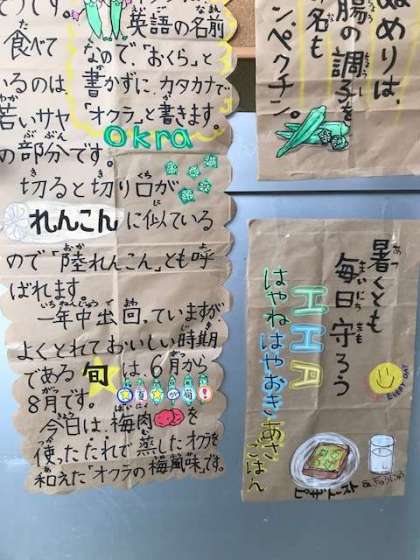 英語の名前
なので、「おくら」と
書かずに、カタカナで
「オクラ」と書きます。
okra
そうです。
食べて
いるのは、
若いサヤ
の部分です。
切ると切り口が
れんこんに似ている
ので「陸れんこん」とも呼
ばれます。
一年中出回っていますが
よくとれておいしい時期
である旬は、6月から
8月です。
今日は、梅肉を
使ったたれで蒸したオクラを
和えた「オクラの梅風味」です。
ぬめりは、
腸の調子を
名も
ンペクチン。
暑くとも
毎日守ろう
HHA
はやねはやおきあさごはん
EVERY DAY
ピザトースト